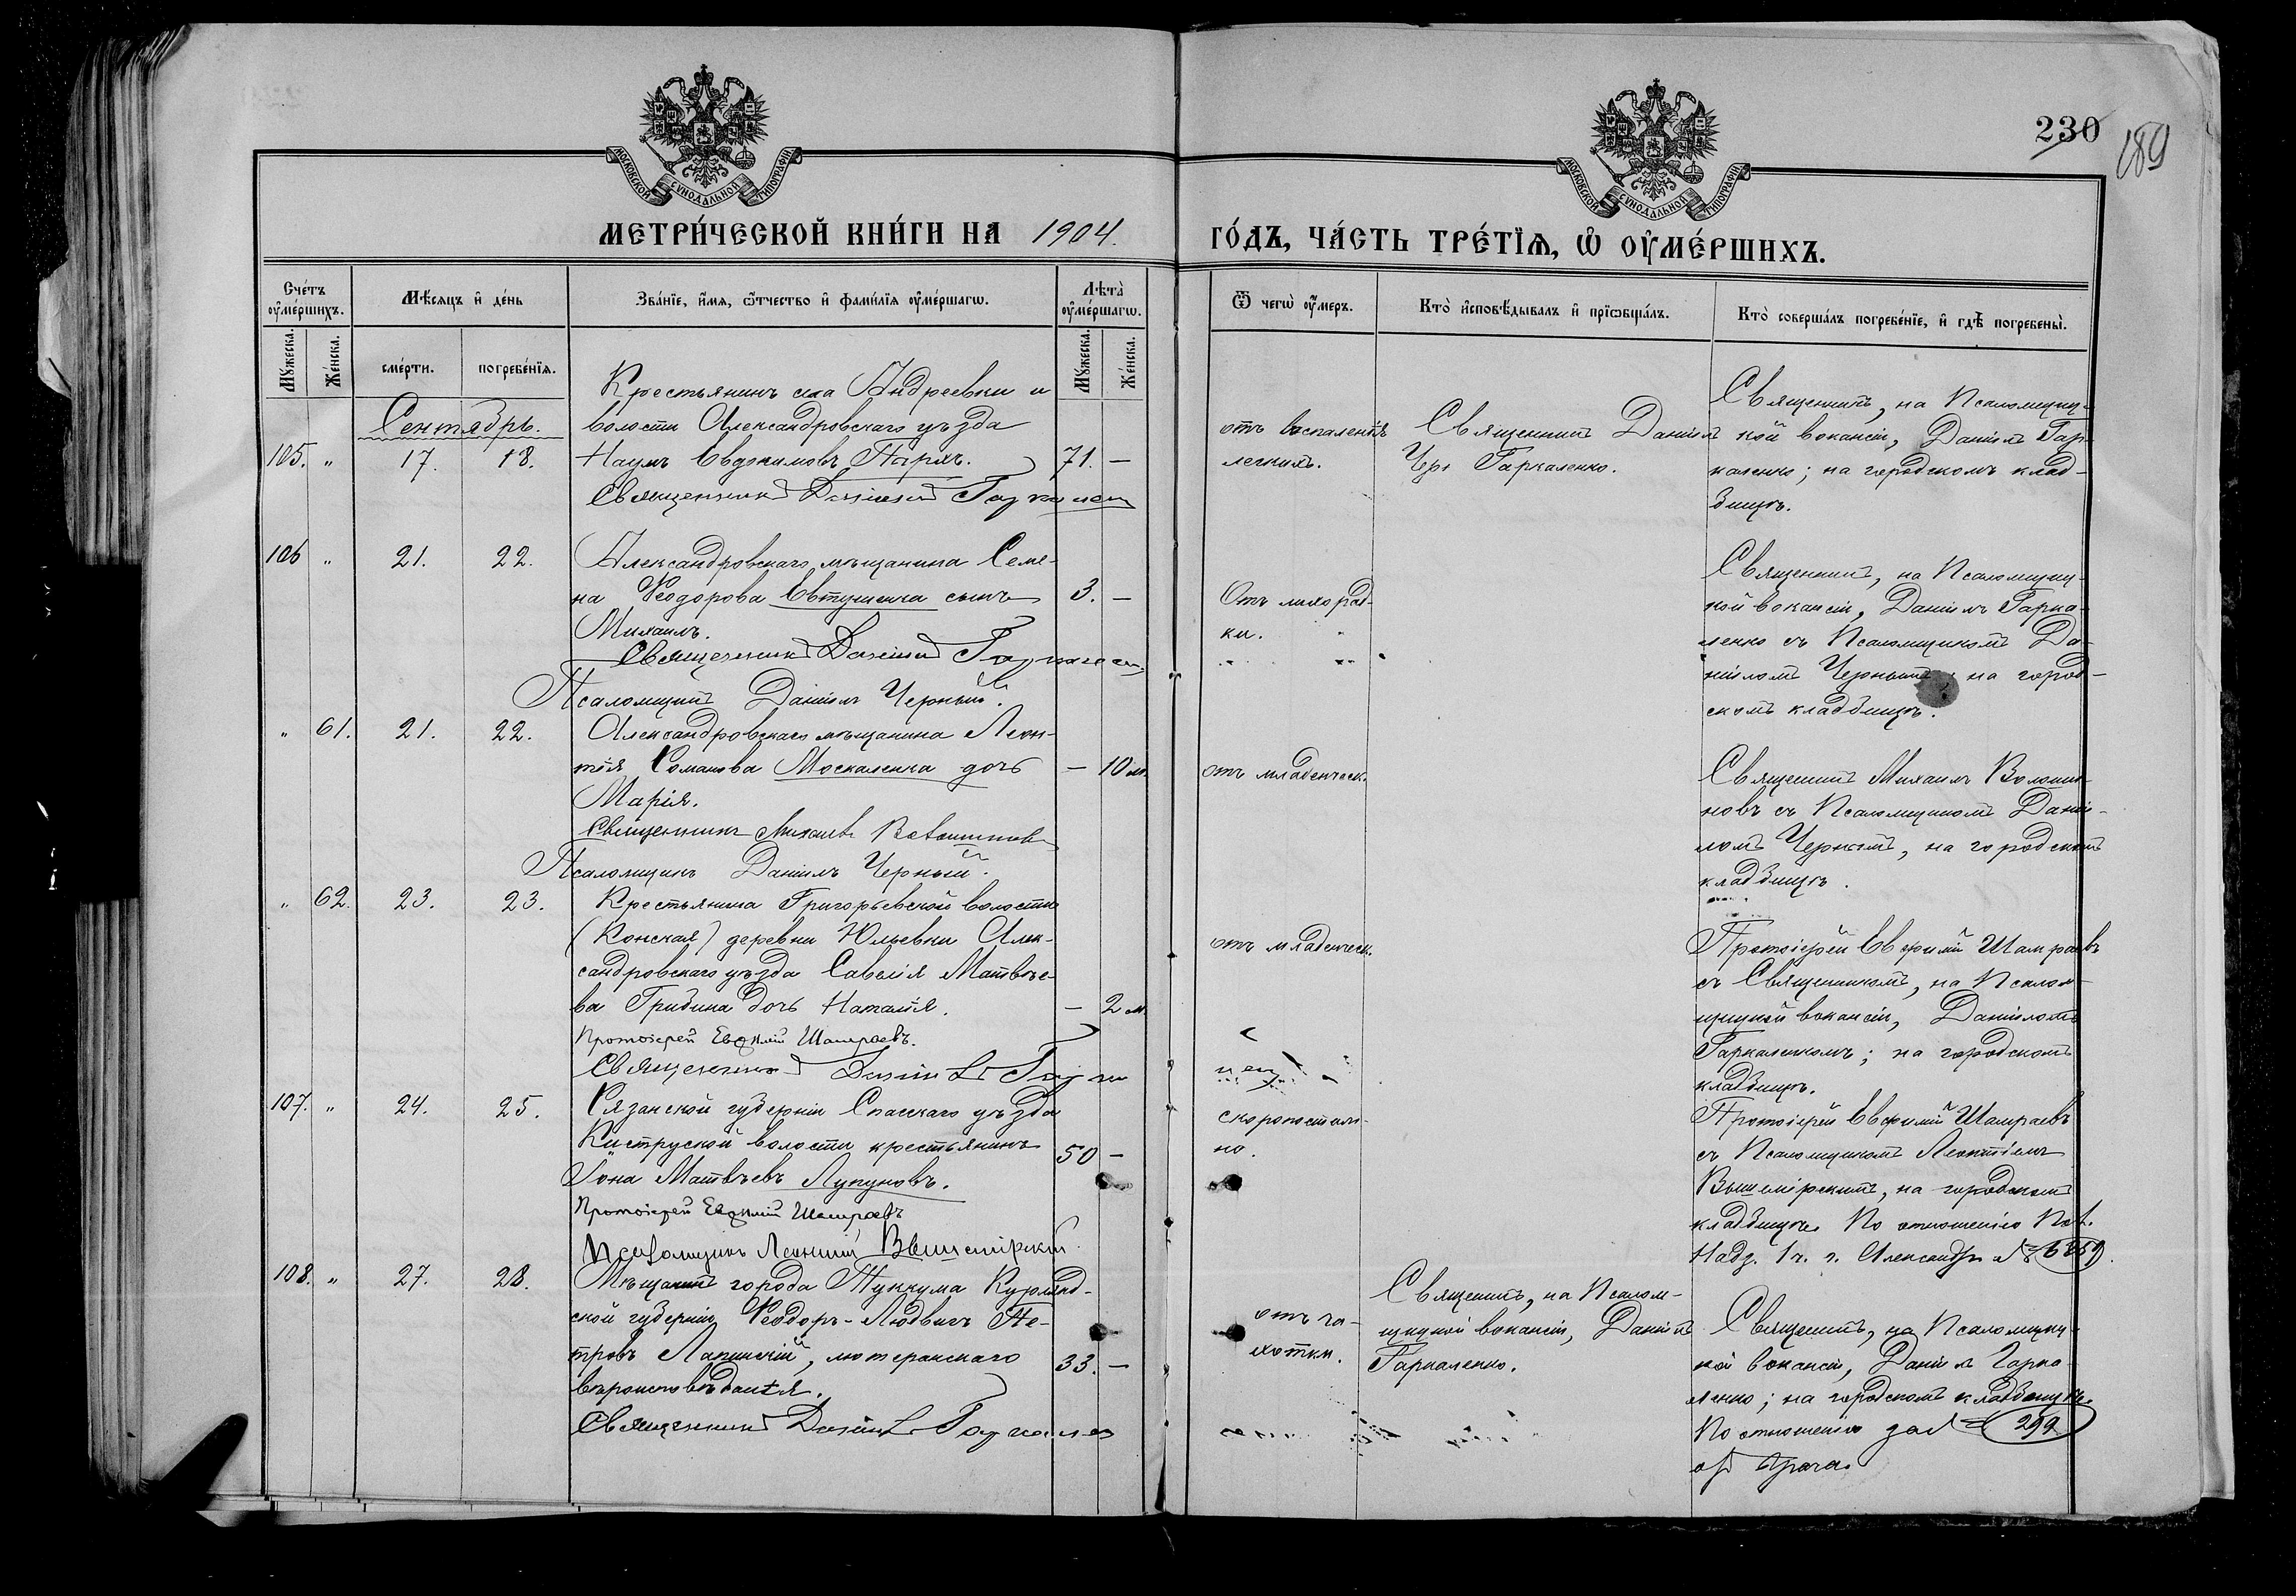 230
189
МОСКОВСКОЙ СѴНОДАЛЬНОЙ ТИПОГРАФІИ
МОСКОВСКОЙ СѴНОДАЛЬНОЙ ТИПОГРАФІИ
МЕТРИ́ЧЕСКОЙ КНИ́ГИ НА 1904.
ГО́ДЪ, ЧА́СТЬ ТРЕ́ТЇѦ, Ѡ҆ ОУ҆МЕ́РШИХЪ.
Сче́тъ оу҆ме́ршихъ.
Мꙋ́жеска.
Же́нска.
Мѣ́сѧцъ и҆ де́нь
сме́рти.
погребе́нїѧ.
Зва́нїе, и҆́мѧ, ѻ҆́тчество и҆ фами́лїѧ оу҆ме́ршагѡ.
Лѣта̀ оу҆ме́ршагѡ.
Мꙋ́жеска.
Же́нска.
Ѿ чегѡ̀ оу҆́меръ.
Кто̀ и҆сповѣ́дывалъ и҆ прїѡбща́лъ.
Кто̀ соверша́лъ погребе́нїе, и҆ гдѣ̀ погребены̀.
Сентябрь.
105. " 17. 18.
Крестьянинъ села Андреевки и
волости Александровскаго уѣзда
Наумъ Евдокимовъ Паряхъ. 71. —
Священникъ Даніилъ
отъ воспаленія
легкихъ.
Священникъ Даніилъ
Гаркаленко.
Священникъ, на Псаломщиц-
кой вакансіи, Даніилъ Гар-
каленко; на городскомъ клад-
бищѣ.
106 " 21. 22.
Александровскаго мѣщанина Семе-
на Ѳеодорова Евтушенка сынъ 3. —
Михаилъ.
Священникъ Даніилъ
Псаломщикъ Даніилъ Черный.
Отъ лихорад-
ки.
Священникъ, на Псаломщиц-
кой вакансіи, Даніилъ Гарка-
ленко съ Псаломщикомъ Да-
ніиломъ Чернымъ, на город-
скомъ кладбищѣ.
" 61. 21. 22.
Александровскаго мѣщанина Леон-
тія Романова Москаленка дочь — 10 м.
Марія.
Священникъ Михаилъ
Псаломщикъ Даніилъ Черный.
отъ младенческ.
Священникъ Михаилъ Волоши-
новъ съ Псаломщикомъ Дані-
ломъ Чернымъ, на городскомъ
кладбищѣ.
" 62. 23. 23.
Крестьянина Григорьевской волости
(Конская) деревни Юльевки Алек-
сандровскаго уѣзда Савелія Матвѣе-
ва Грибина дочь Наталія. — 2 м.
Протоіерей Евѳимій Шамраевъ.
Священникъ Даніилъ
отъ младенческ.
Протоіерей Евфимій Шамраевъ
съ Священникомъ, на Псалом-
щицкой вакансіи, Даніиломъ
Гаркаленкомъ; на городскомъ
кладбищѣ.
107. " 24. 25.
Рязанской губерніи Спасскаго уѣзда
Киструской волости крестьянинъ
Іона Матвѣевъ Лупуновъ. 50 —
Протоіерей Евѳимій Шамраевъ
Псаломщикъ Леонтій Вышемірскій.
скоропостиж-
но.
Протоіерей Евфимій Шамраевъ
съ Псаломщикомъ Леонтіемъ
Вышемірскимъ, на городскомъ
кладбищѣ. По отношенію Пол.
Надз. 1 ч. г. Александр.
108. " 27. 28.
Мѣщанинъ города Туккума Курлянд-
ской губерніи Ѳеодоръ-Людвигъ Пе-
тровъ Лапинскій, лютеранскаго 33. —
вѣроисповѣданія.
Священникъ Даніилъ
отъ ча-
хотки.
Священникъ, на Псалом-
щицкой вакансіи, Даніилъ
Гаркаленко.
Священникъ, на Псаломщиц-
кой вакансіи, Даніилъ Гарка-
ленко; на городскомъ кладбищѣ.
По отношенію за № 299
врача.